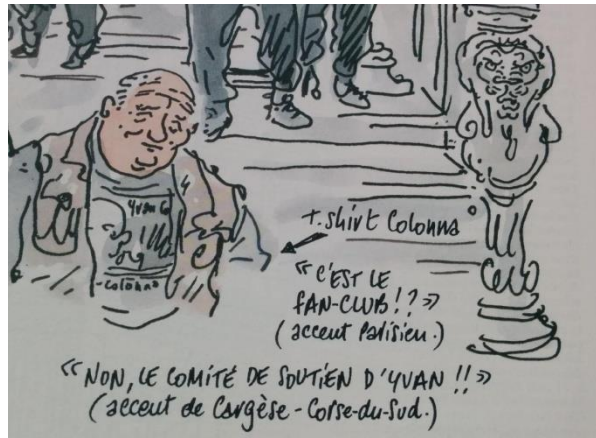 Yvan Co
-Colonna
T.shirt Colonna
« C'EST LE
FAN-CLUB !? »
(accent Parisien.)
« NON, LE COMITÉ DE SOUTIEN D'YVAN !! »
(accent de Cargèse - Corse-du-Sud.)